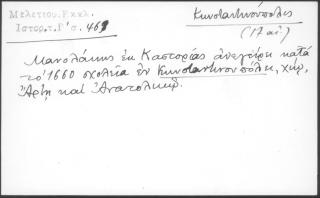 Μελετίου.Εκκλ.
Ιστορ.τ.Γ΄σ. 469
Κωνσταντινούπολις
(17 αἰ.)
Μανολάκης ἐκ Καστορίας ἀνεγείρει κατά
τό 1660 σχολεῖα ἐν Κωνσταντινουπόλει, Χίῳ,
Ἄρτῃ καί Ἀνατολικῷ.